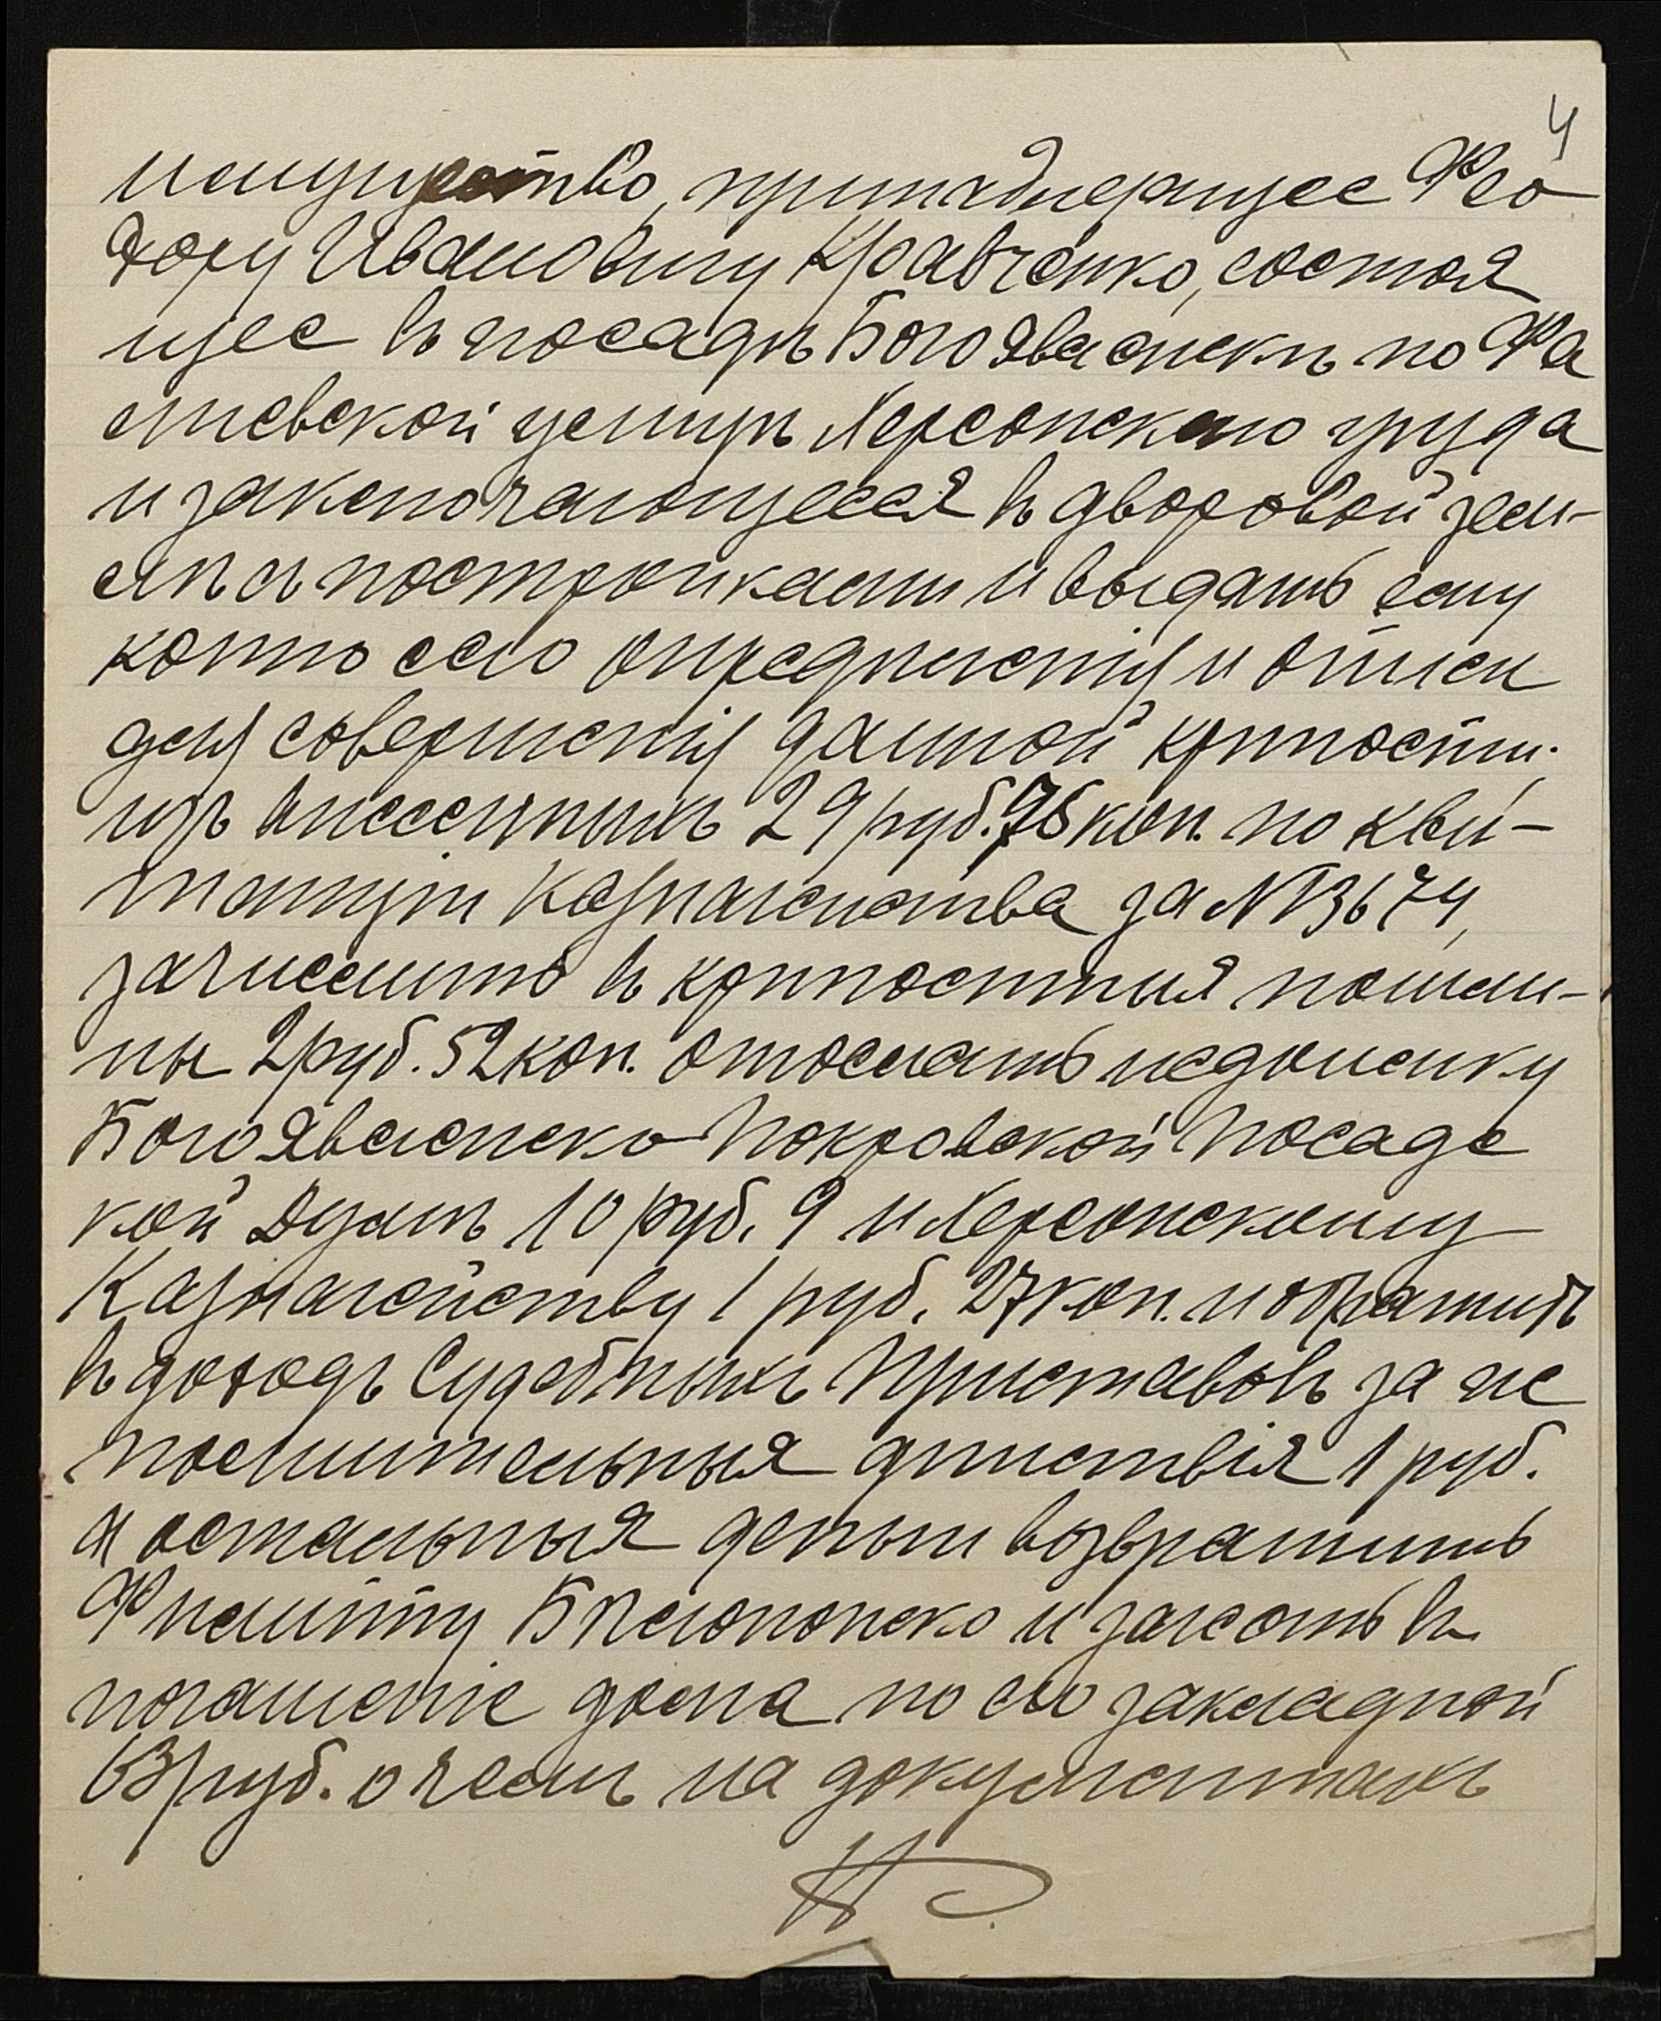 4
имущество, принадлежащее Фео
дору Ивановичу Кравченко, состоя
щее въ посадѣ Богоявленскѣ по Фа
лѣевской улицѣ Херсонскаго уѣзда
и заключающееся въ дворовой зем-
лѣ съ постройками и выдать ему
копію сего опредѣленія и описи
для совершенія данной крѣпости;
изъ внесенныхъ 29 руб. 76 коп. по кви-
танціи Казначейства за № 13674,
зачислить въ крѣпостныя пошли-
ны 2 руб. 52 коп. отослать недоимку
Богоявленско-Покровской Посадс
кой Думѣ 10 руб. 9 и Херсонскому
Казначейству 1 руб. 27 коп. и обратить
въ доходъ Судебныхъ Приставовъ за ис
полнительныя дѣйствія 1 руб.
а остальныя деньги возвратить
Филиппу Бѣлоконско и зачесть въ
погашеніе долга по его закладной
63 руб. о чемъ на документахъ